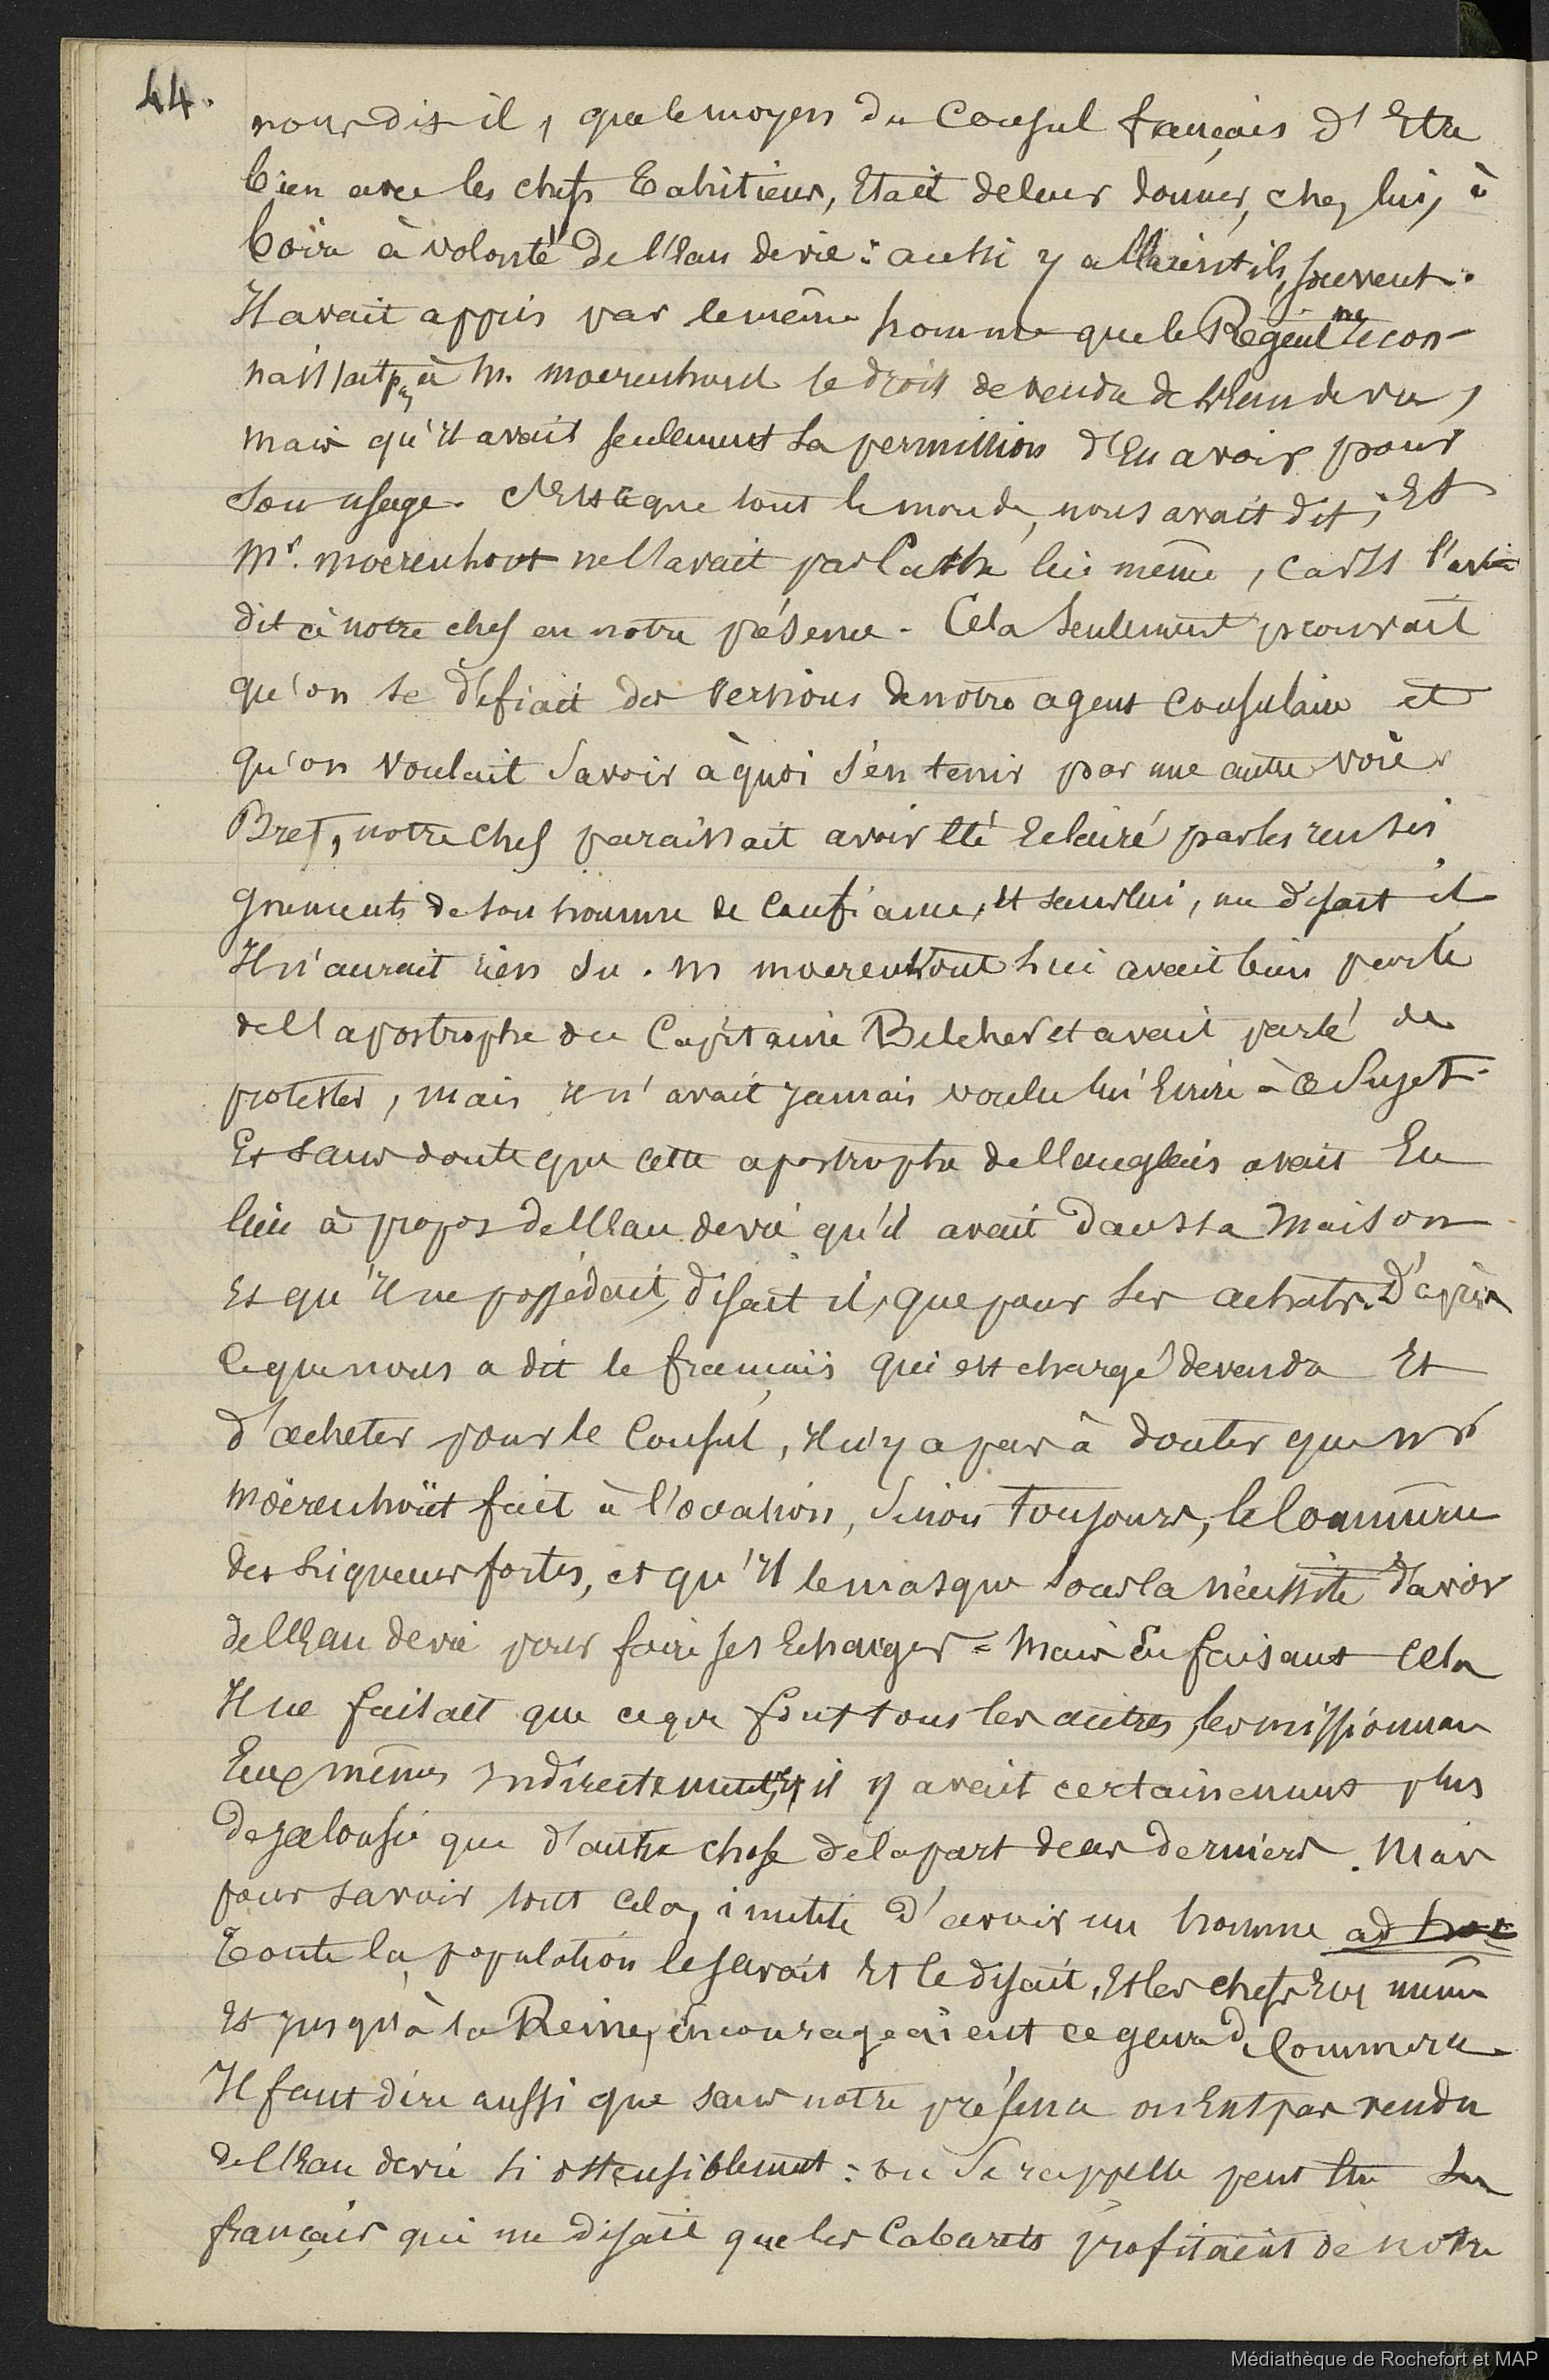 44.
nous dit-il, que le moyen du Consul français d'Etre
bien avec les chefs Tahitiens, Etait de leur donner, chez lui, à
boire à volonté de l'Eau de vie : aussi y allaient ils souvent.
Il avait appris par le même homme que le Régent ne recon-
naissait pas à M. moerenhout le droit de vendre de l'Eau de vie,
mais qu'il avait seulement la permission d'En avoir pour
son usage. C'Est ce que tout le monde, nous avait dit ; Et
Mr. moerenhout ne l'avait pas caché lui même, car Il l'avait
dit à notre chef en notre présence. Cela seulement prouvait
qu'on se défiait des versions de notre agent consulaire et
qu'on voulait savoir à quoi s'en tenir par une autre voie.
Bref, notre chef paraissait avoir Eté Eclairé par les rensei
gnements de son homme de confiance, et sans lui, me disait il
Il n'aurait rien su. M moerenhout lui avait bien parlé
de l'apostrophe du Capitaine Belcher et avait parlé de
protester, mais Il n'avait jamais voulu lui Ecrire à ce sujet.
Et sans doute que cette apostrophe de l'anglais avait Eu
lieu à propos de l'Eau de vie qu'il avait dans sa maison
Et qu'Il ne possédait, disait il, que pour ses achats. D'après
ce que nous a dit le français qui est chargé de vendre Et
d'acheter pour le Consul, Il n'y a pas à douter que Mr
moërenhoüt fait à l'occasion, sinon toujours, le Commerce
des liqueurs fortes, et qu'Il le masque sous la nécessité d'avoir
de l'Eau de vie pour faire ses Echanges = Mais En faisant cela
Il ne faisait que ce que font tous les autres, les missionnaires
Eux mêmes indirectement, Et il y avait certainement plus
de jalousie que d'autre chose de la part de ces derniers. Mais
pour savoir tout cela, inutile d'avoir un homme ad hoc
Toute la population le savait Et le disait, Et les chefs Eux mêmes
Et jusqu'à la Reine, Encourageaient ce genre de Commerce.
Il faut dire aussi que sans notre présence on n'Eut pas vendu
de l'Eau de vie si ostensiblement : on se rappelle peut Etre le
français qui me disait que les Cabarets profitaient de notre
Médiathèque de Rochefort et MAP